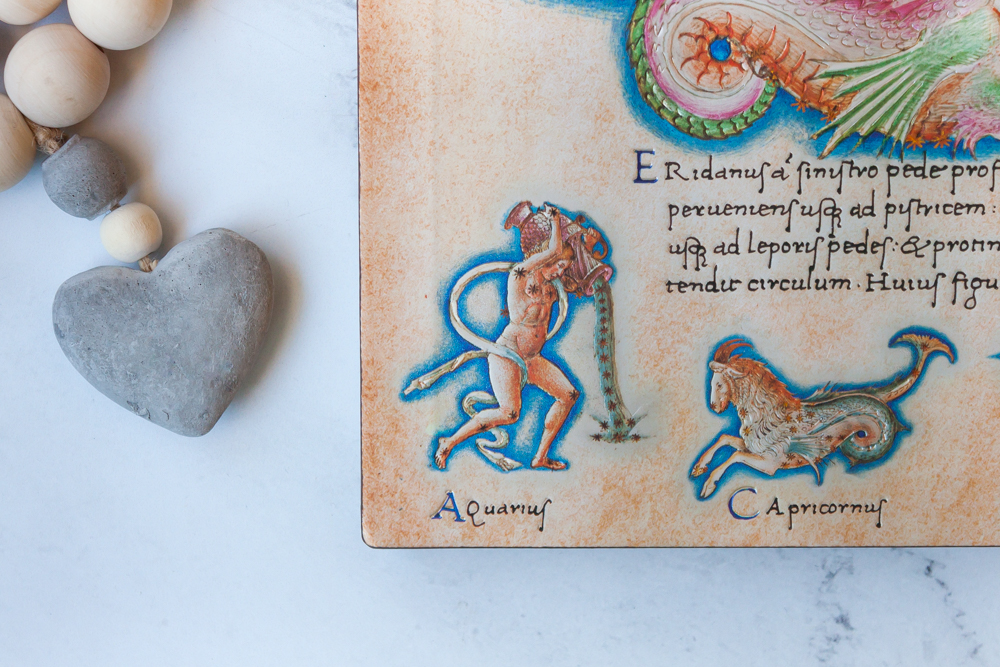 ERidanuſ a ſiniſtro pede prof
perueniens uſꝗ ad piſtricem :
uſꝗ ad leporiſ pedeſ : & protin
tendit circulum . Huiuſ figu
AQuariuſ
CApricornuſ